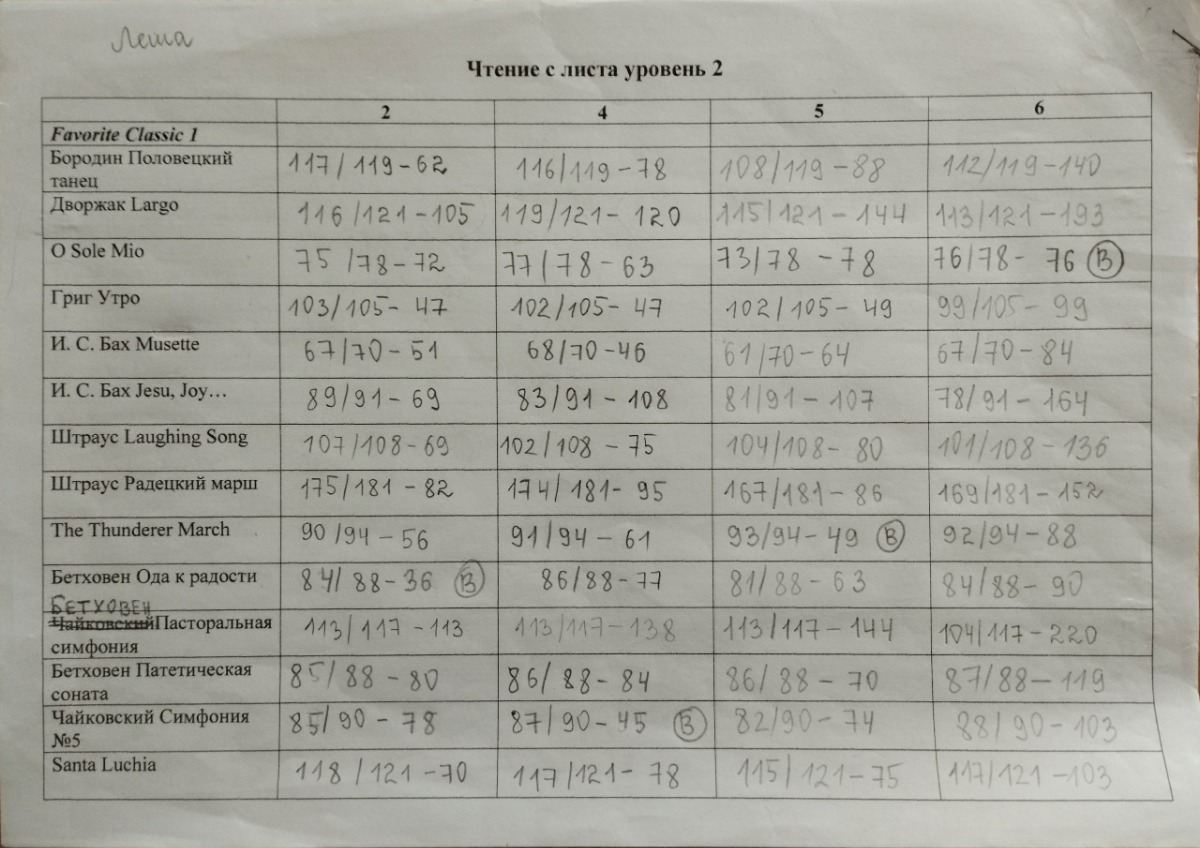 Леша
Чтение с листа уровень 2
2 4 5 6
Favorite Classic 1
Бородин Половецкий танец 117/119-62 116/119-78 108/119-88 112/119-140
Дворжак Largo 116/121-105 119/121-120 115/121-144 113/121-193
O Sole Mio 75/78-72 77/78-63 73/78-78 76/78-76 В
Григ Утро 103/105-47 102/105-47 102/105-49 99/105-99
И. С. Бах Musette 67/70-51 68/70-46 61/70-64 67/70-84
И. С. Бах Jesu, Joy… 89/91-69 83/91-108 81/91-107 78/91-164
Штраус Laughing Song 107/108-69 102/108-75 104/108-80 101/108-136
Штраус Радецкий марш 175/181-82 174/181-95 167/181-86 169/181-152
The Thunderer March 90/94-56 91/94-61 93/94-49 В 92/94-88
Бетховен Ода к радости 84/88-36 В 86/88-77 81/88-63 84/88-90
БЕТХОВЕН
ЧайковскийПасторальная симфония 113/117-113 113/117-138 113/117-144 104/117-220
Бетховен Патетическая соната 85/88-80 86/88-84 86/88-70 87/88-119
Чайковский Симфония №5 85/90-78 87/90-45 В 82/90-74 88/90-103
Santa Luchia 118/121-70 117/121-78 115/121-75 117/121-103